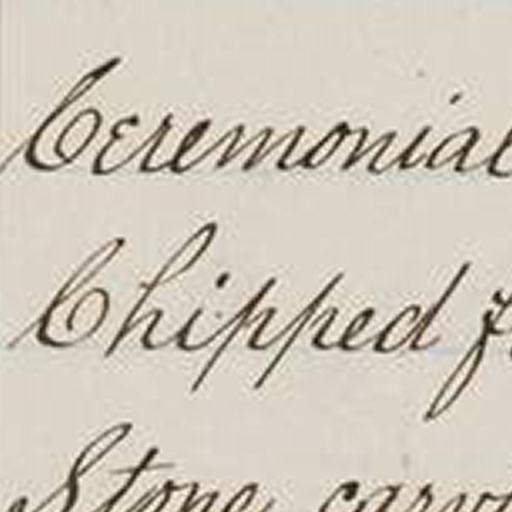 Ceremonial
Chipped f
Stone carv